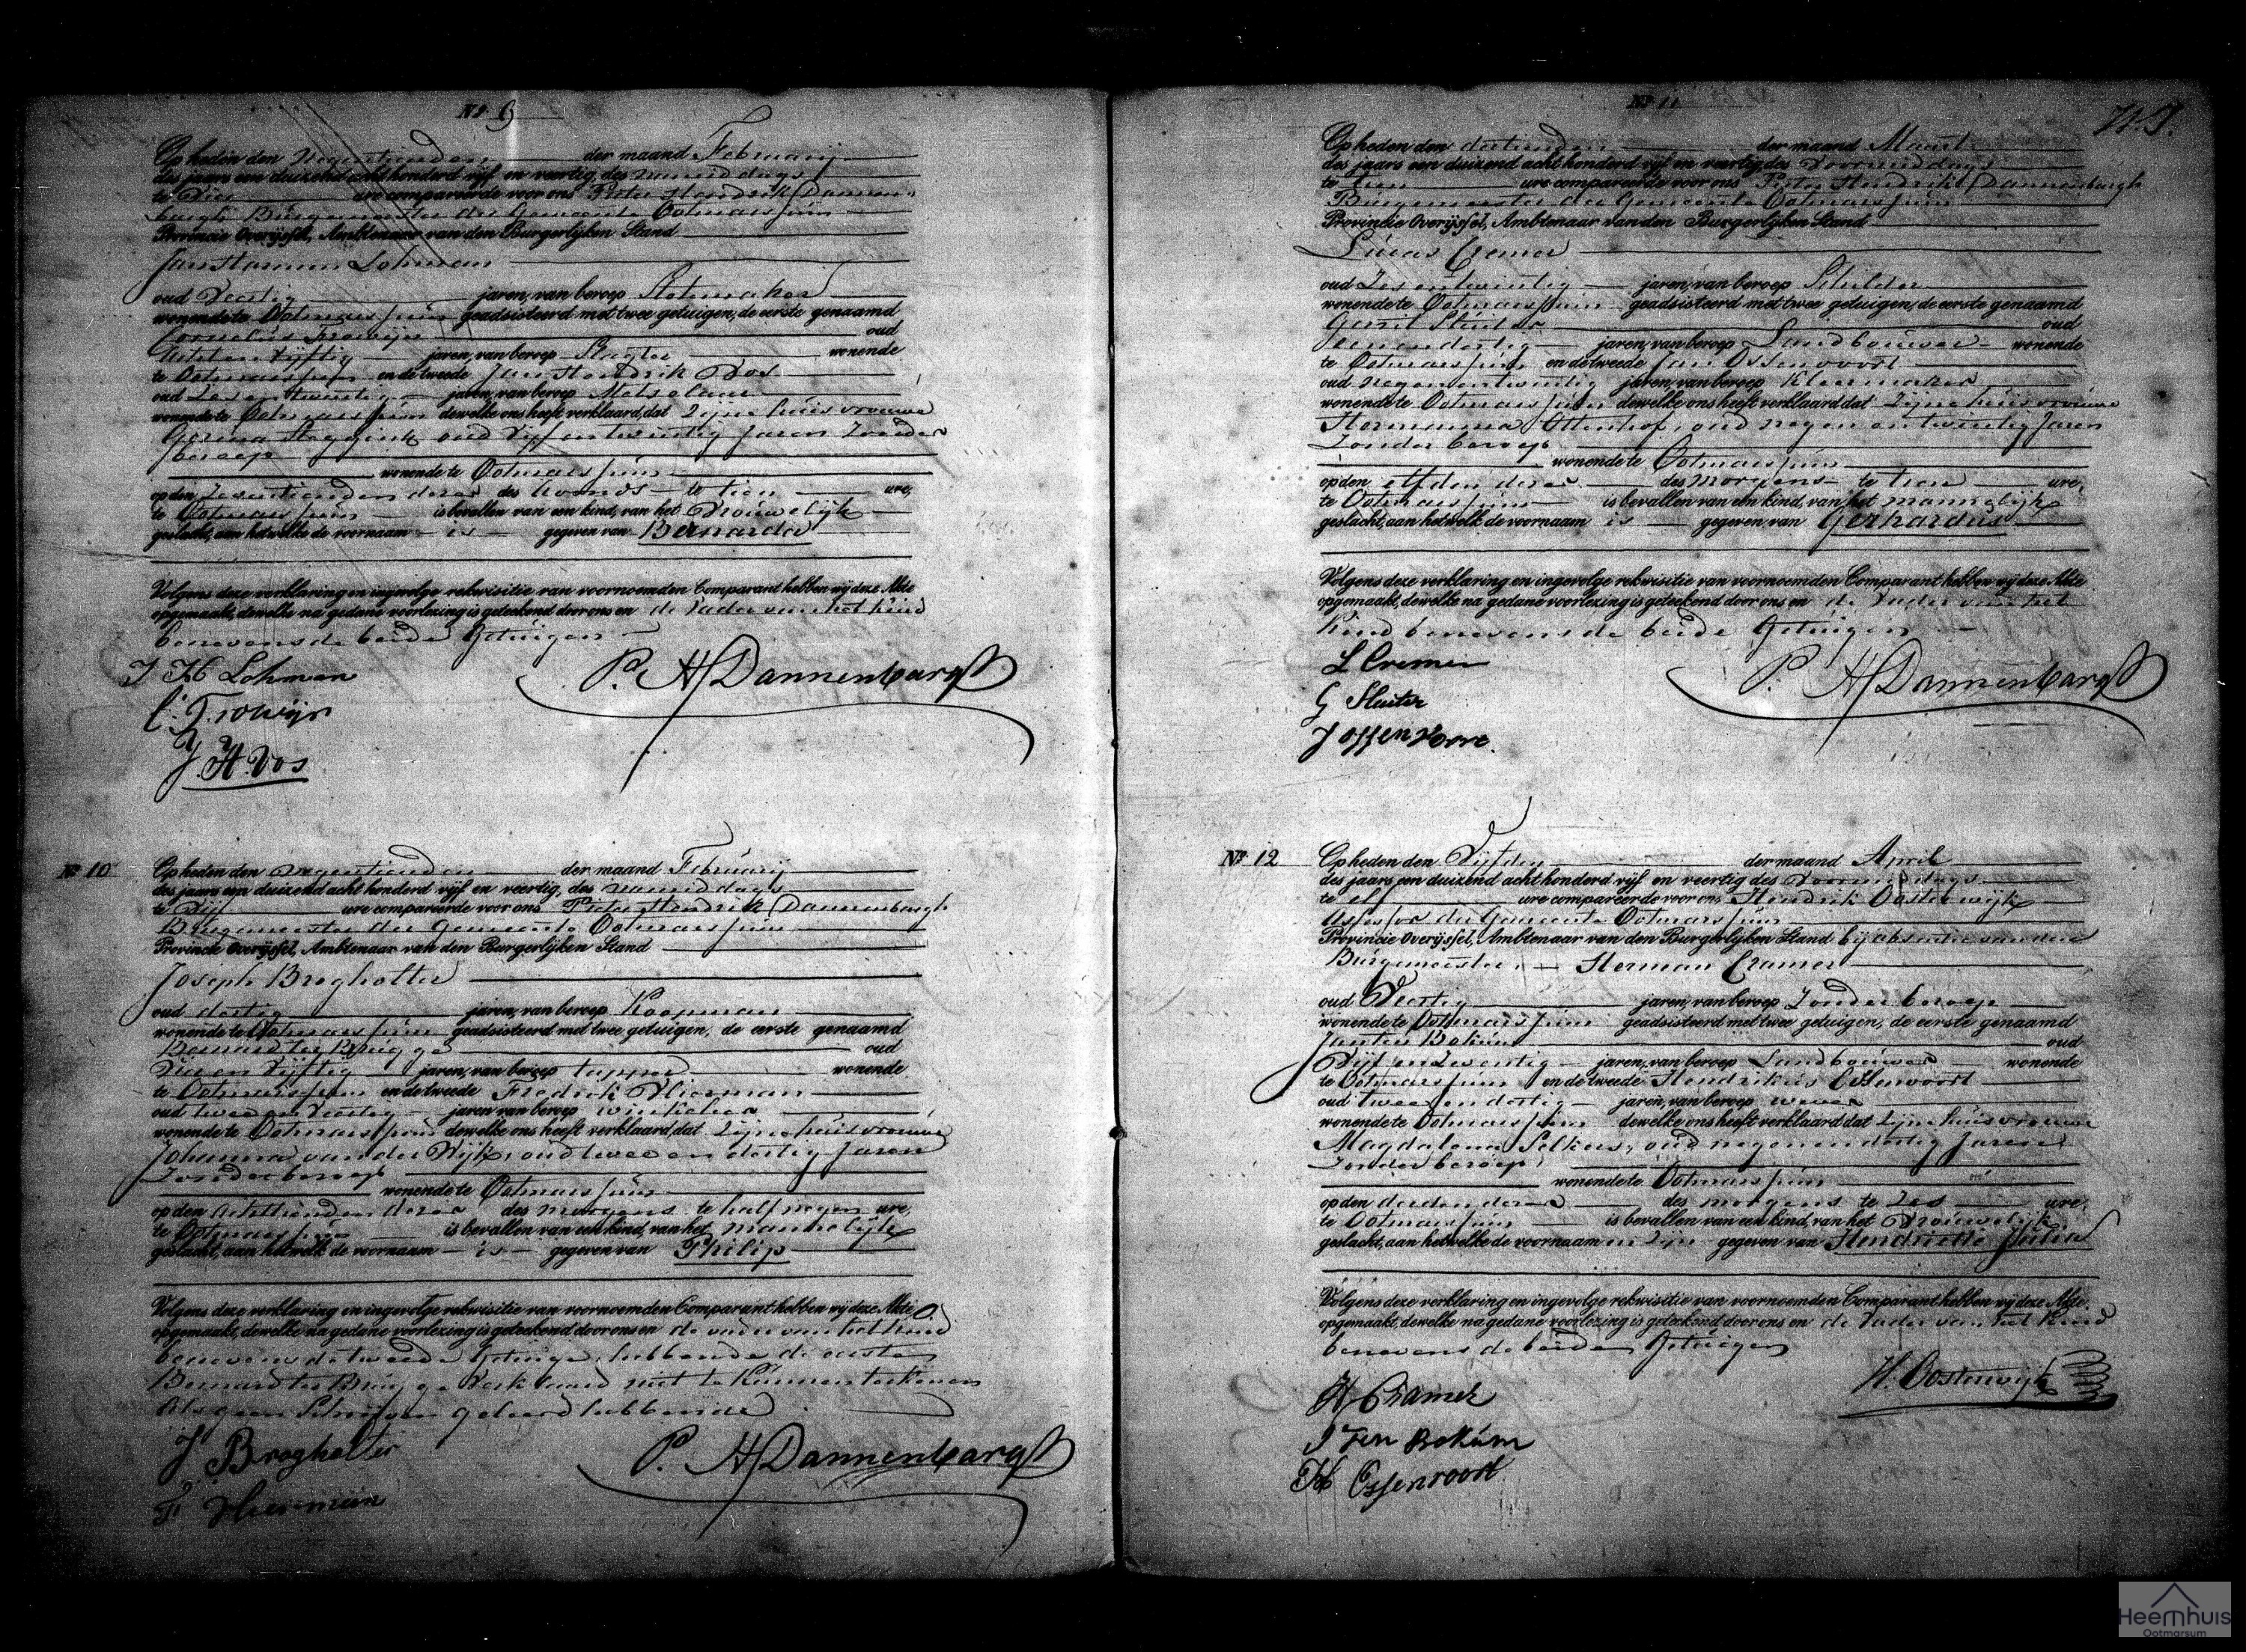 Nº 9
Op heden den Negentienden der maand Februarij
des jaars een duizend acht honderd vijf en veertig, des namiddags
te Vier ure compareerde voor ons Pieter Hendrik Dannen-
bargh Burgemeester der Gemeente Ootmarssum
Provincie Overijssel, Ambtenaar van den Burgerlijken Stand
Jan Harmen Lohman
oud Veertig jaren, van beroep Slotmaker
wonende te Ootmarssum geadsisteerd met twee getuigen, de eerste genaamd
Cornelus Trowijn oud
Acht en Vijftig jaren, van beroep Slagter wonende
te Ootmarssum en de tweede Jan Hendrik Vos
oud Zes en twintig jaren, van beroep Metselaar
wonende te Ootmarssum dewelke ons heeft verklaard, dat Zijne huisvrouwe
Gerina Steggink oud Vijf en twintig Jaren Zonder
beroep
wonende te Ootmarssum
op den Zestienden dezer des Avonds te tien ure,
te Ootmarssum is bevallen van een kind, van het Vrouwelijk
geslacht, aan hetwelke de voornaam is gegeven van Bernarda
Volgens deze verklaring en ingevolge rekwisitie van voornoemden Comparant hebben wij deze Akte
opgemaakt, dewelke na gedane voorlezing is geteekend door ons en de Vader van het kind
benevens de beide Getuigen
J H Lohman
P. H Dannenbargh
C. Trowijn
J. H. Vos
Nº 10
Op heden den Negentienden der maand Februarij
des jaars een duizend acht honderd vijf en veertig, des namiddags
te Vijf ure compareerde voor ons Pieter Hendrik Dannenbargh
Burgemeester der Gemeente Ootmarssum
Provincie Overijssel, Ambtenaar van den Burgerlijken Stand
Joseph Bregholter
oud dertig jaren, van beroep Koopman
wonende te Ootmarssum geadsisteerd met twee getuigen, de eerste genaamd
Bernard ter Brugge oud
Vier en Vijftig jaren, van beroep tapper wonende
te Ootmarssum en de tweede Fredrik Vlierman
oud twee en Veertig jaren van beroep winkelier
wonende te Ootmarssum dewelke ons heeft verklaard, dat Zijne huisvrouwe
Johanna van der Wijk, oud twee en dertig Jaren
Zonder beroep
wonende te Ootmarssum
op den Achttienden dezer des Morgens te half negen ure,
te Ootmarssum is bevallen van een kind, van het mannelijk
geslacht, aan hetwelk de voornaam is gegeven van Philip
Volgens deze verklaring en ingevolge rekwisitie van voornoemden Comparant hebben wij deze Akte
opgemaakt, dewelke na gedane voorlezing is geteekend door ons en de vader van het kind
benevens de tweede Getuige, hebbende de eerste
Bernard ter Brugge Verklaard niet te Kunnen teekenen
Als geen Schrijven geleerd hebbende
J Bregholter
P. H Dannenbargh
F Vlierman
Nº 11
Op heden den dertienden der maand Maart
des jaars een duizend acht honderd vijf en veertig, des Voormiddags
te tien ure compareerde voor ons Pieter Hendrik Dannenbargh
Burgemeester der Gemeente Ootmarssum
Provincie Overijssel, Ambtenaar van den Burgerlijken Stand
Lucas Cremer
oud Zes en twintig jaren, van beroep Schilder
wonende te Ootmarssum geadsisteerd met twee getuigen, de eerste genaamd
Gerrit Sluiter oud
een en dertig jaren, van beroep Landbouwer wonende
te Ootmarssum en de tweede Jan Ossenvoort
oud Negen en twintig jaren, van beroep Kleermaker
wonende te Ootmarssum dewelke ons heeft verklaard dat Zijne huisvrouwe
Hermanna Ottenhof, oud negen en twintig Jaren
Zonder beroep
wonende te Ootmarssum
op den elfden dezer des Morgens te tien ure,
te Ootmarssum is bevallen van een kind, van het mannelijk
geslacht, aan hetwelk de voornaam is gegeven van Gerhardus
Volgens deze verklaring en ingevolge rekwisitie van voornoemden Comparant hebben wij deze Akte
opgemaakt, dewelke na gedane voorlezing is geteekend door ons en de Vader van het
Kind benevens de beide Getuigen
L Cremer
P. H Dannenbargh
G Sluiter
J Ossenvoort
Nº 12
Op heden den Vijfden der maand April
des jaars een duizend acht honderd vijf en veertig des Voormiddags
te elf ure compareerde voor ons Hendrik Oosterwijk
Assessor der Gemeente Ootmarssum
Provincie Overijssel, Ambtenaar van den Burgerlijken Stand bij absentie van den
Burgemeester. Herman Cramer
oud Veertig jaren, van beroep Zonder beroep
wonende te Ootmarssum geadsisteerd met twee getuigen, de eerste genaamd
Jan ten Bokum oud
Vijf en Zeventig jaren, van beroep Landbouwer wonende
te Ootmarssum en de tweede Hendrikus Ossenvoort
oud twee en dertig jaren, van beroep wever
wonende te Ootmarssum dewelke ons heeft verklaard dat Zijne huisvrouwe
Magdalena Selkers, oud negen en dertig Jaren
Zonder beroep
wonende te Ootmarssum
op den derden dezer des morgens te Zes ure,
te Ootmarssum is bevallen van een kind, van het Vrouwelijk
geslacht, aan hetwelke de voornaamen Zijn gegeven van Hendriette Julia
Volgens deze verklaring en ingevolge rekwisitie van voornoemden Comparant hebben wij deze Akte
opgemaakt, dewelke na gedane voorlezing is geteekend door ons en de Vader van het Kind
benevens de beiden Getuigen
H. Oosterwijk
H Cramer
J ten Bokum
H Ossenvoort
Heemhuis
Ootmarsum